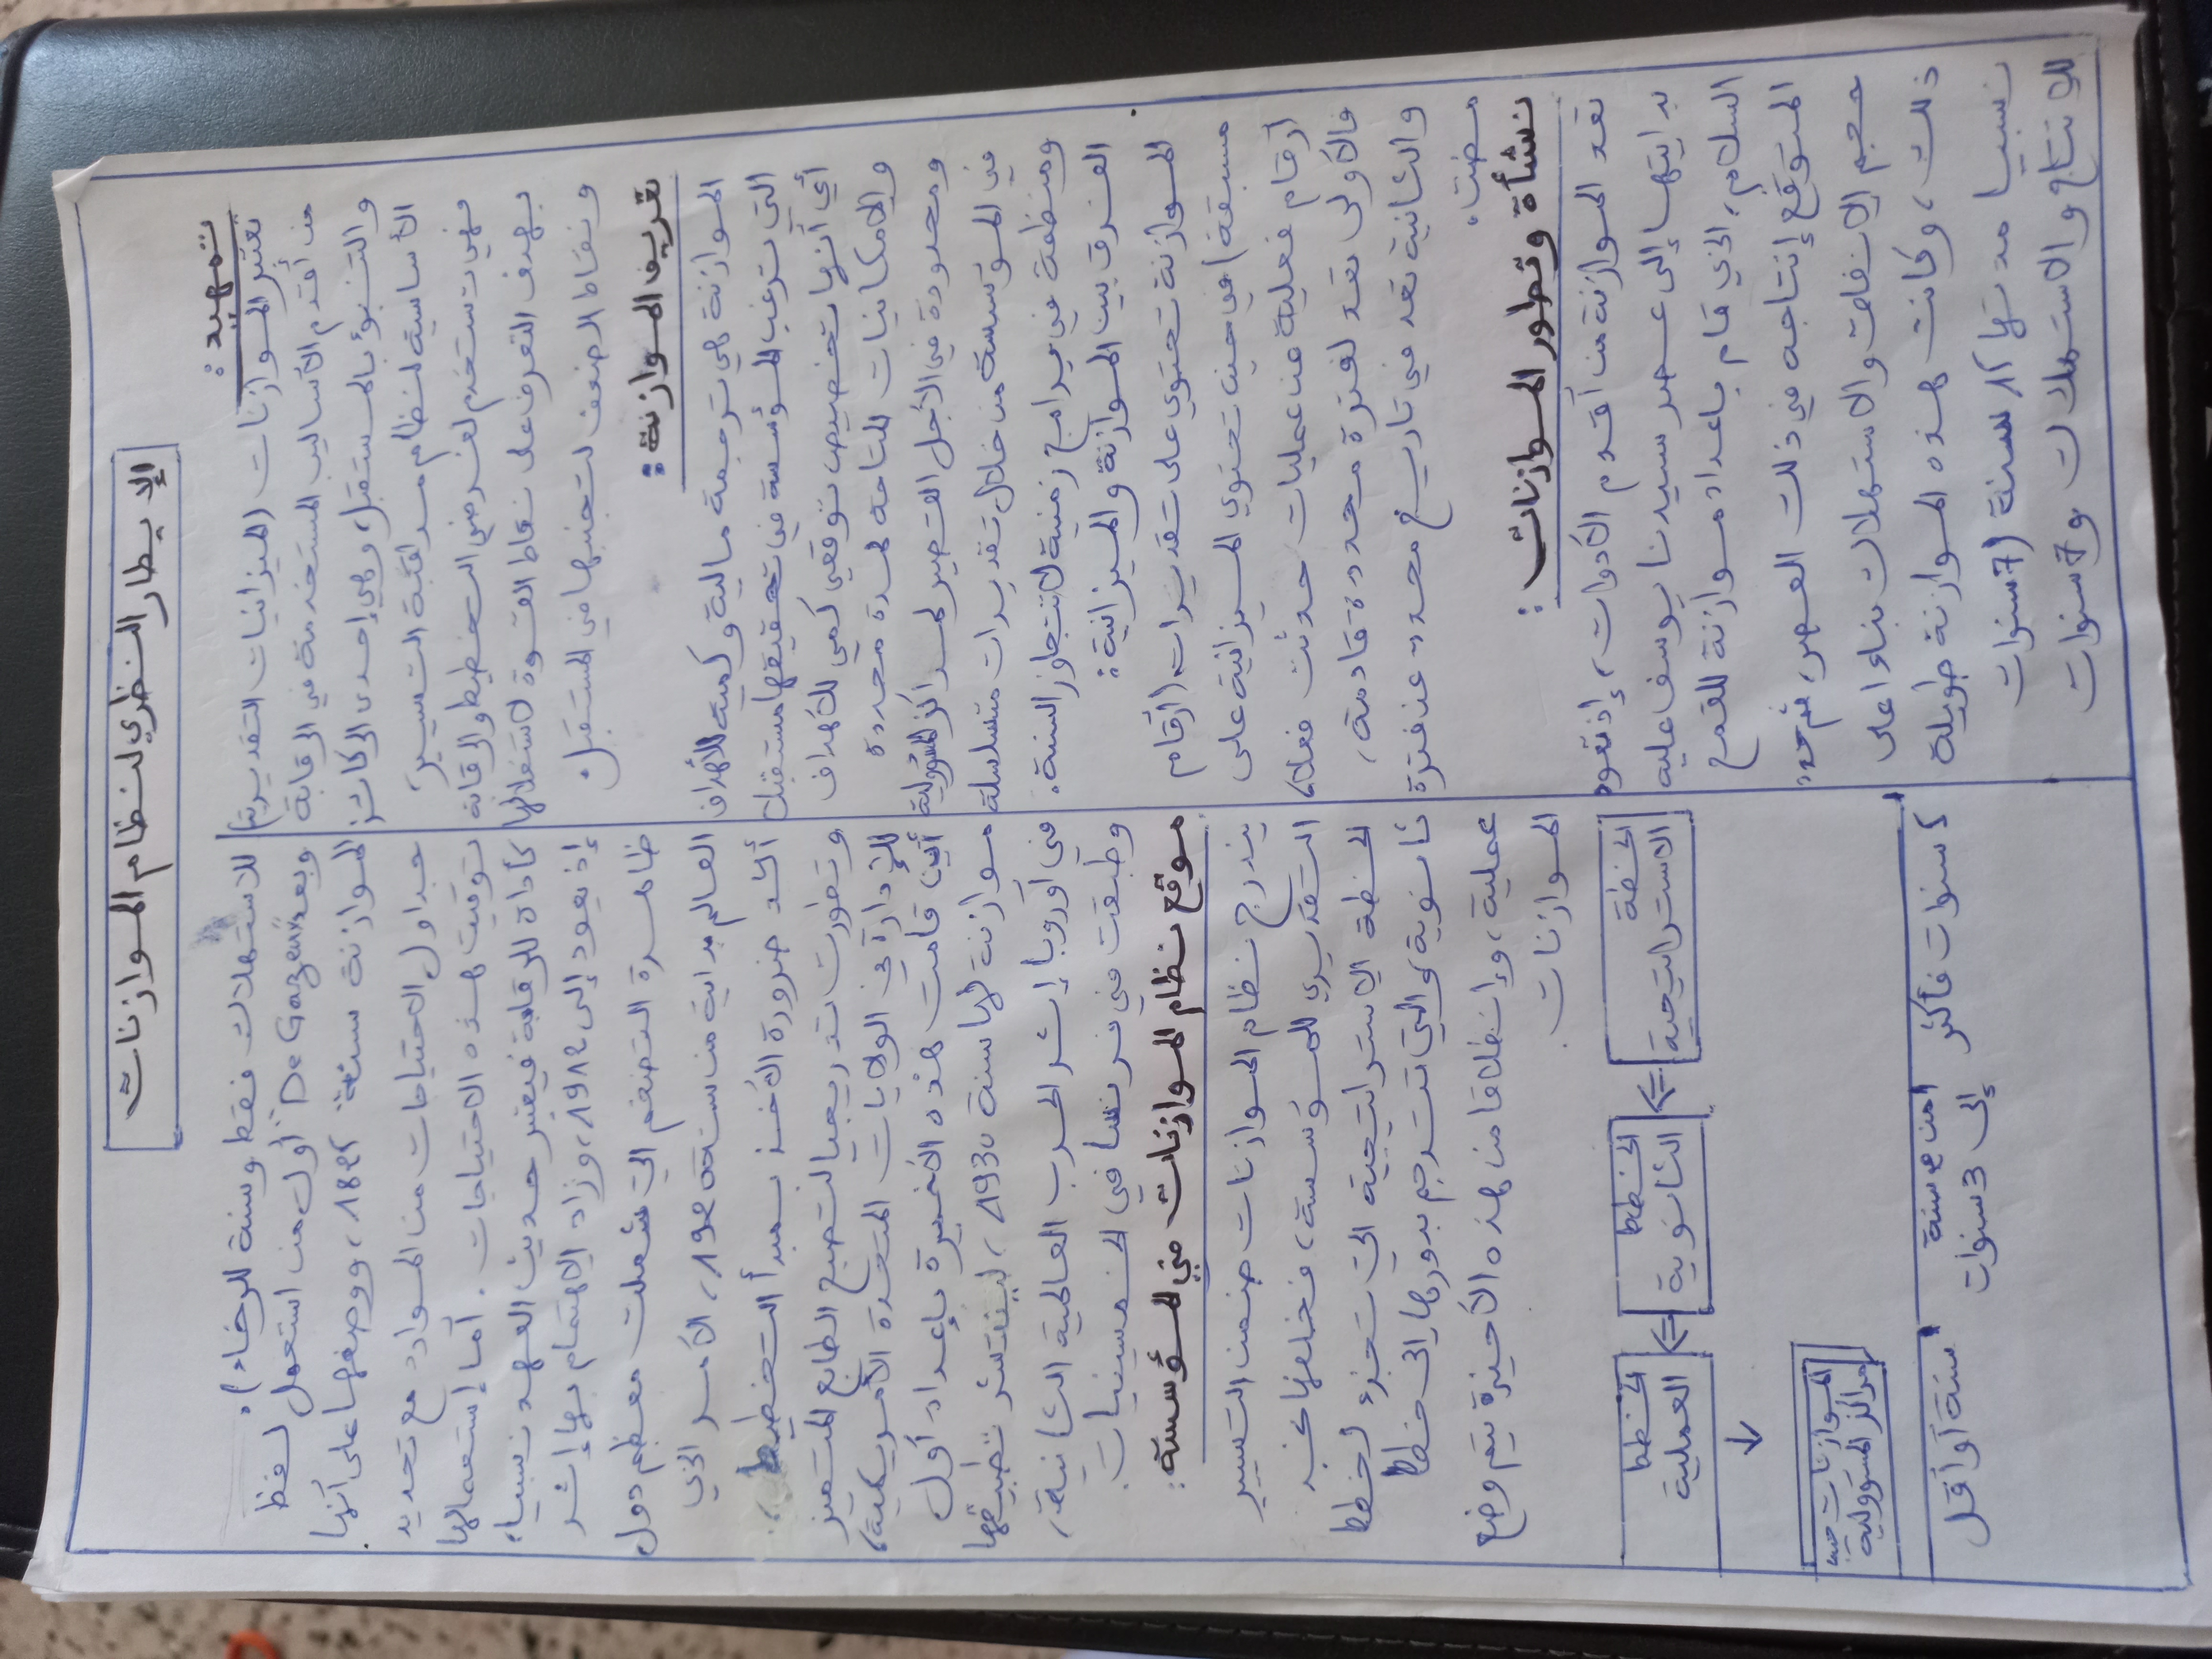 الإيطار النظري لنظام الموازنات
تمهيد:
تعتبر الموازنات (الميزانيات التقديرية)
من أقدم الأساليب المستخدمة في الرقابة
والتنبؤ بالمستقبل، وهي إحدى الركائز
الأساسية لنظام مراقبة التسيير،
فهي تستخدم لغرضي التخطيط والرقابة
بهدف التعرف على نقاط القوة لاستغلالها
ونقاط الضعف لتجنبها في المستقبل.
تعريف الموازنة:
الموازنة هي ترجمة مالية وكمية للأهداف
التي ترغب المؤسسة في تحقيقها مستقبلا
أي أنها تخصيص توقعي كمي للأهداف
والإمكانيات المتاحة لمدة محددة
ومحدودة في الأجل القصير لمراكز المسؤولية
في المؤسسة من خلال تقديرات متسلسلة
ومنظمة في برامج زمنية لا تتجاوز السنة.
الفرق بين الموازنة والميزانية:
الموازنة تحتوي على تقديرات (أرقام
مسبقة) في حين تحتوي الميزانية على
أرقام فعلية عن عمليات حدثت فعلا،
فالأولى تعد لفترة محددة قادمة،
والثانية تعد في تاريخ محدد عن فترة
مضت.
نشأة وتطور الموازنات:
تعد الموازنة من أقدم الأدوات، إذ تعود
بدايتها إلى عصر سيدنا يوسف عليه
السلام، الذي قام بإعداد موازنة للقمح
المتوقع إنتاجه في ذلك العصر، ثم حدد
حجم الإنفاق والاستهلاك بناءا على
ذلك، وكانت هذه الموازنة طويلة
نسبيا مدتها 15 سنة (7 سنوات
للإنتاج والاستهلاك و7 سنوات
للاستهلاك فقط وسنة للرخاء).
وبعد "De Gazeux" أول من استعمل لفظ
الموازنة سنة 1825، ووصفها على أنها
جداول الاحتياجات من المواد مع تحديد
توقيت هذه الاحتياجات. أما إستعمالها
كأداة للرقابة فيعتبر حديث العهد نسبيا،
إذ يعود إلى 1912، وزاد الإهتمام بها إثر
ظاهرة التضخم التي شملت معظم دول
العالم بداية من سنة 1920، الأمر الذي
أكد ضرورة الأخذ بمبدأ التخطيط،
وتطورت تدريجيا لتصبح الطابع المتميز
للإدارة في الولايات المتحدة الأمريكية،
أين قامت هذه الأخيرة بإعداد أول
موازنة لها سنة 1930، لينتشر تطبيقها
في أوروبا إثر الحرب العالمية الثانية،
وطبقت في فرنسا في الخمسينيات.
موقع نظام الموازنات في المؤسسة:
يندرج نظام الموازنات ضمن التسيير
التقديري للمؤسسة، فخلفها نجد
الخطة الإستراتيجية التي تتجزء لخطط
ثانوية، والتي تترجم بدورها إلى خطط
عملية، وإنطلاقا من هذه الأخيرة يتم وضع
الموازنات.
الخطة الاستراتيجية ⇒ الخطط الثانوية ⇒ الخطط العملية
↓
الموازنات حسب مراكز المسؤولية
5 سنوات فأكثر
من سنة إلى 3 سنوات
سنة أو أقل